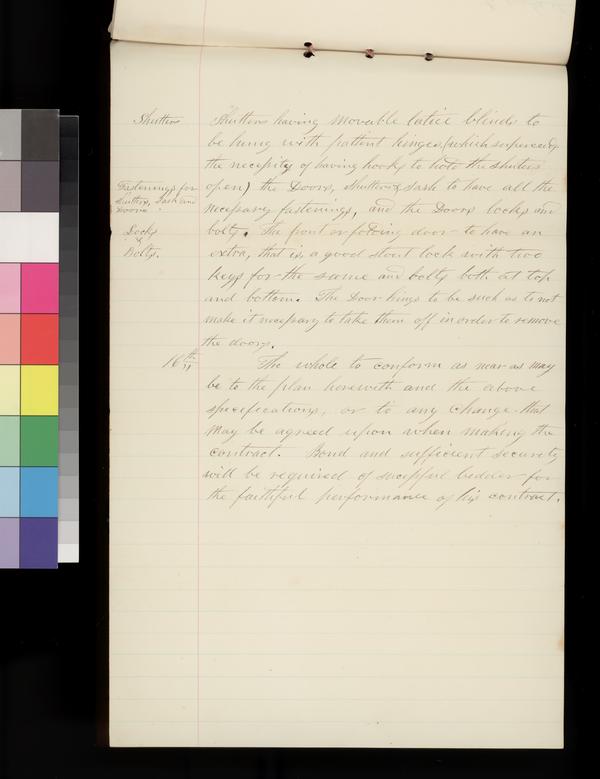 Shutters
Shutters having movable latice blinds to
be hung with pattent hinges (which supercedes
the necessity of having hooks to hold the shutters
Fastenings for
shutters, Sash and
Doors.
open) the Doors, Shutters & sash to have all the
necessary fastenings, and the Doors locks and
Locks
&
Bolts.
bolts. The front or folding door to have an
extra, that is, a good stout lock with two
keys for the same and bolts both at top
and bottom. The Door hings to be such as to not
make it necessary to take them off in order to remove
the doors.
16th
The whole to conform as near as may
be to the plan herewith and the above
specifications, or to any change that
may be agreed upon when making the
contract. Bond and sufficient security
will be required of sucessful bedder for
the faithful performance of his contract.